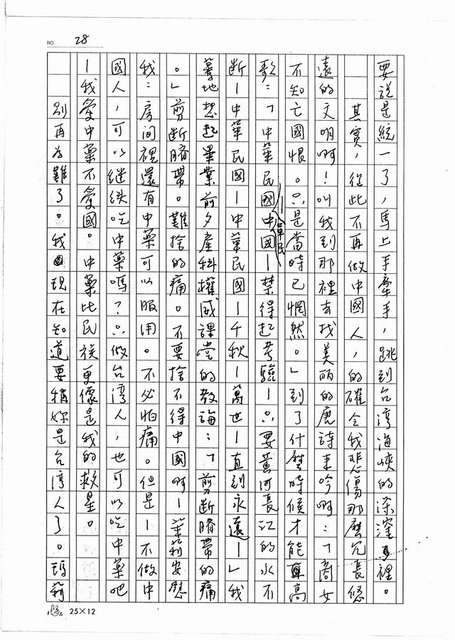 NO. 28
要說是統一了，馬上手牽手，跳到台灣海峽的深深裡。
其實，從此不再做中國人，的確令我悲傷那麼冗長悠
遠的文明啊！叫我到那裡去找美丽的唐詩來吟啊：「商女
不知亡國恨。」只是當時已惘然。」到了什麼時候才能再高
歌：「中華民國中華民國－禁得起考驗－只要黃河長江的水不
斷－中華民國－中華民國－千秋－萬世－直到永遠－」我
驀地想起畢業前夕產科權威課堂的教誨：「剪斷臍帶的痛
。」剪斷臍帶。難捨的痛。不要捨不得中國啊－茉莉安慰
我：房间裡還有中藥可以服用。不必怕痛。但是－不做中
國人，可以繼续吃中藥嗎？只做台湾人，也可以吃中藥吧
－我愛中藥不愛國。中藥比民族更像是我的救星。
別再為難了。我現在知道要稱妳是台湾人了。瑪莉
25×12